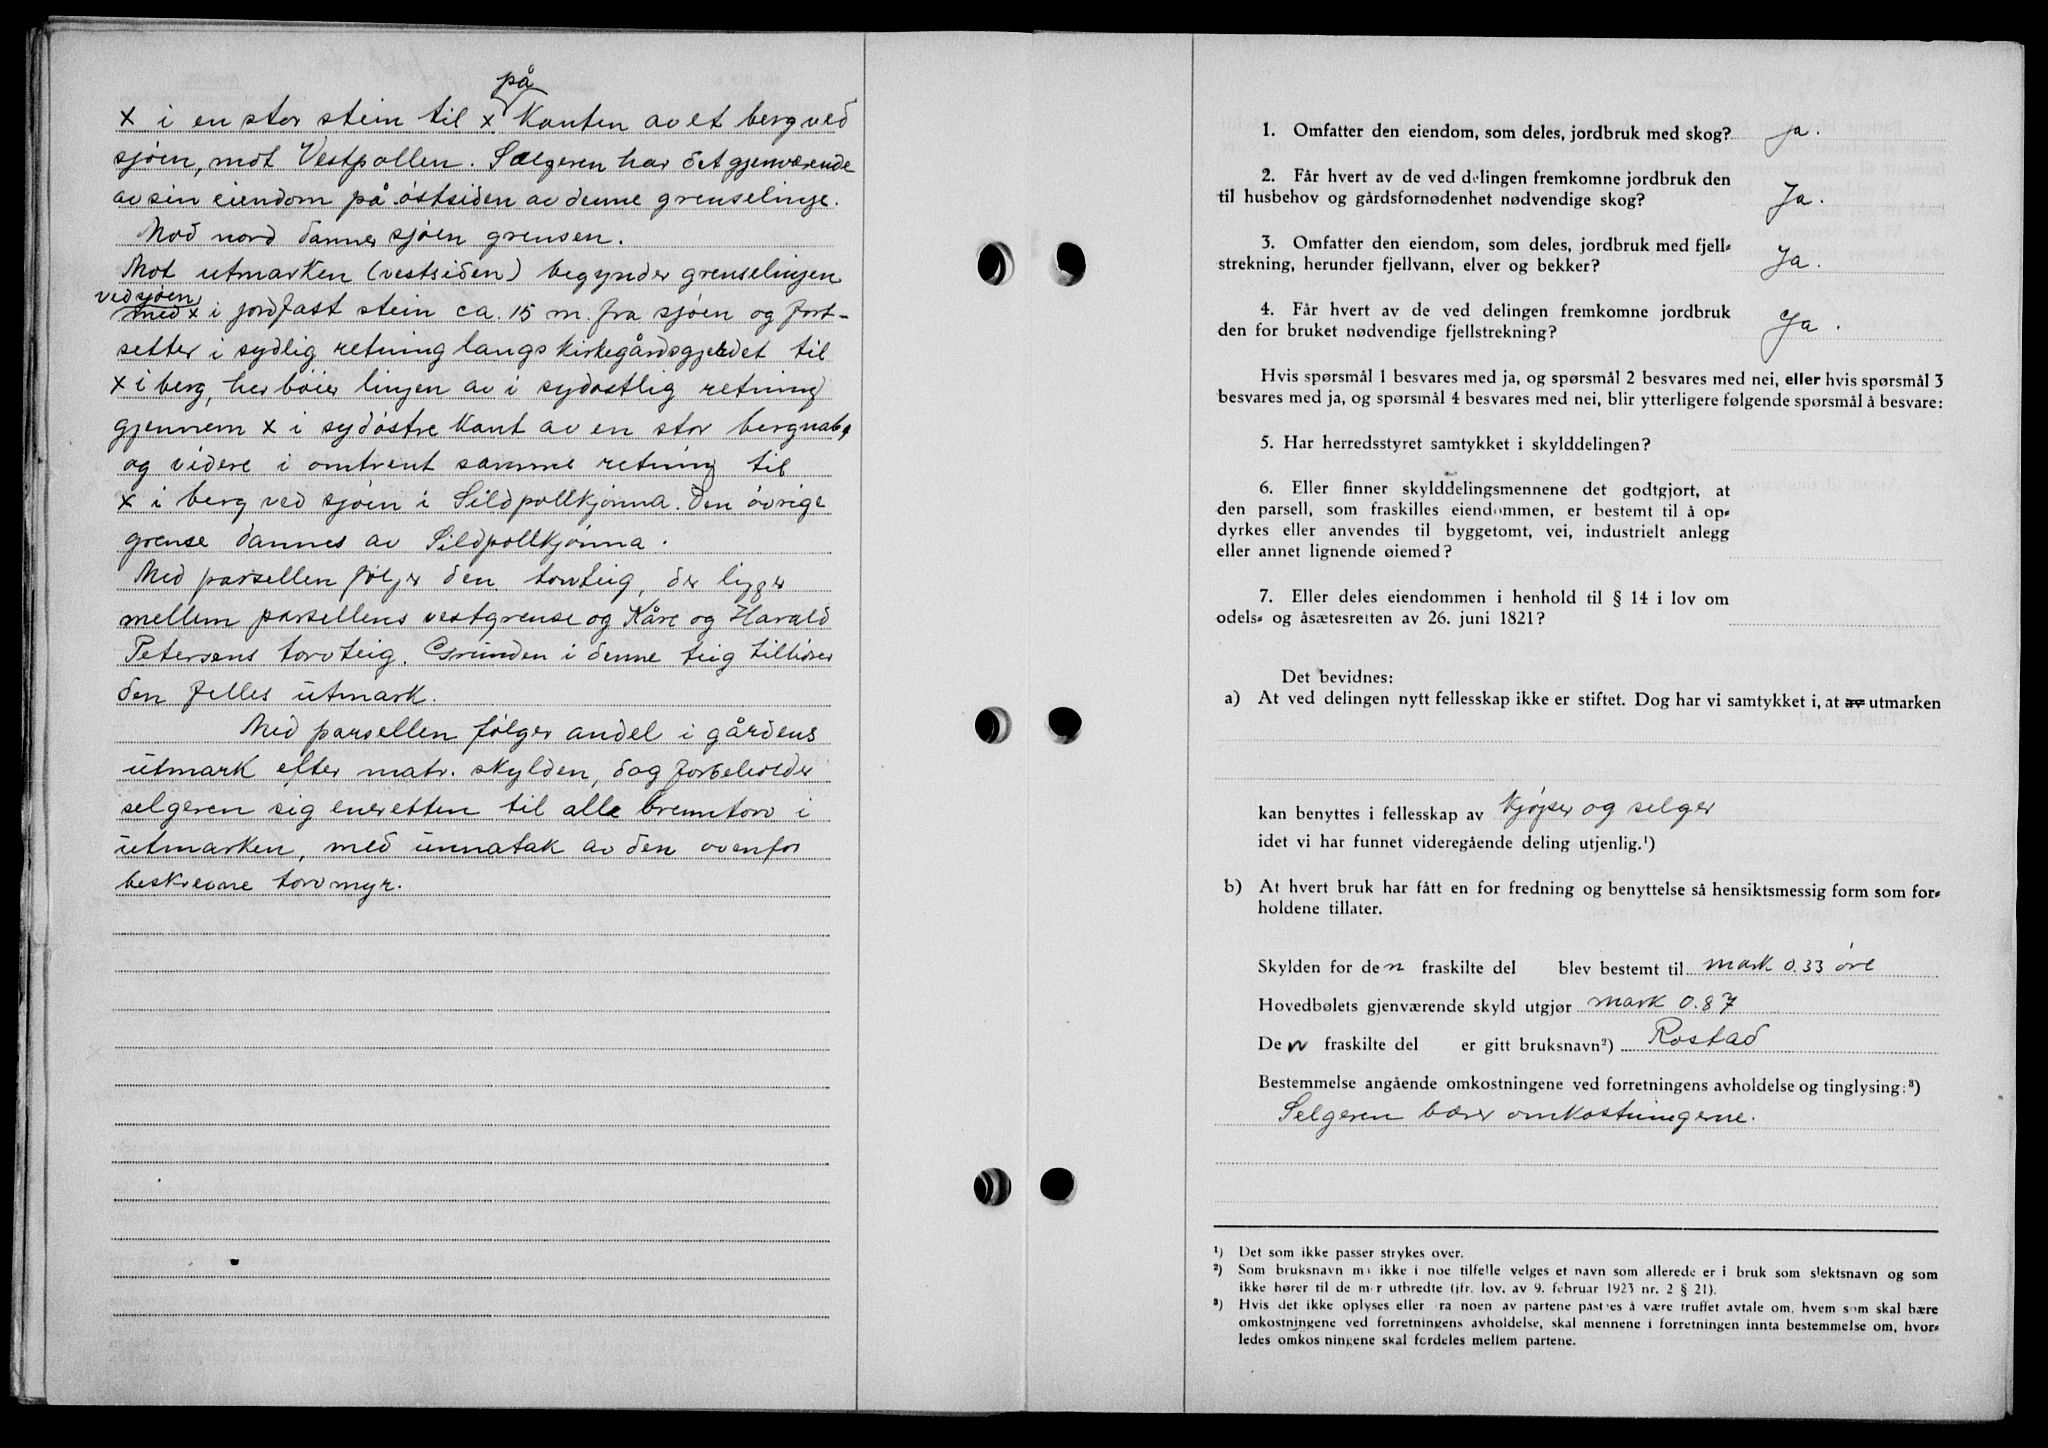 på
x i en stor stein til x Kanten av et berg ved
sjøen, mot Vestpollen. Sælgeren har det gjenværende
av sin eiendom på østsiden av denne grenselinje.
Mod nord danner sjøen grensen.
Mot utmarken (vestsiden) begynder grenselinjen
ved sjøen
med x i jordfast stein ca. 15 m. fra sjøen og fort-
setter i sydlig retning langs kirkegårdsgjerdet til
x i berg, her bøier linjen av i sydøstlig retning
gjennem x i sydøstre Kant av en stor bergnabb,
og videre i omtrent samme retning til
x i berg ved sjøen i Sildpollkjønna. Den øvrige
grense dannes av Sildpollkjønna.
Med parsellen følger den torvteig, der ligger
mellem parsellens vestgrense og Kåre og Harald
Petersens torvteig. Grunden i denne teig tilhører
den felles utmark.
Med parsellen følger andel i gårdens
utmark efter matr. skylden, dog forbeholder
selgeren sig eneretten til alle brenntorv i
utmarken, med unnatak av den ovenfor
beskrevne torvmyr.
1. Omfatter den eiendom, som deles, jordbruk med skog? Ja.
2. Får hvert av de ved delingen fremkomne jordbruk den
til husbehov og gårdsfornødenhet nødvendige skog? Ja.
3. Omfatter den eiendom, som deles, jordbruk med fjell-
strekning, herunder fjellvann, elver og bekker? Ja.
4. Får hvert av de ved delingen fremkomne jordbruk
den for bruket nødvendige fjellstrekning? Ja.
Hvis spørsmål 1 besvares med ja, og spørsmål 2 besvares med nei, eller hvis spørsmål 3
besvares med ja, og spørsmål 4 besvares med nei, blir ytterligere følgende spørsmål å besvare:
5. Har herredsstyret samtykket i skylddelingen?
6. Eller finner skylddelingsmennene det godtgjort, at
den parsell, som fraskilles eiendommen, er bestemt til å op-
dyrkes eller anvendes til byggetomt, vei, industrielt anlegg
eller annet lignende øiemed?
7. Eller deles eiendommen i henhold til § 14 i lov om
odels- og åsætesretten av 26. juni 1821?
Det bevidnes:
a) At ved delingen nytt fellesskap ikke er stiftet. Dog har vi samtykket i, at av utmarken
kan benyttes i fellesskap av kjøper og selger
idet vi har funnet videregående deling utjenlig.¹)
b) At hvert bruk har fått en for fredning og benyttelse så hensiktsmessig form som for-
holdene tillater.
Skylden for den fraskilte del blev bestemt til mark 0.33 øre
Hovedbølets gjenværende skyld utgjør mark 0.87
Den fraskilte del er gitt bruksnavn²) Rostad
Bestemmelse angående omkostningene ved forretningens avholdelse og tinglysing:³)
Selgeren bærer omkostningerne.
¹) Det som ikke passer strykes over.
²) Som bruksnavn må ikke i noe tilfelle velges et navn som allerede er i bruk som slektsnavn og som
ikke hører til de mer utbredte (jfr. lov. av 9. februar 1923 nr. 2 § 21).
³) Hvis det ikke oplyses eller fra noen av partene påstås å være truffet avtale om, hvem som skal bære
omkostningene ved forretningens avholdelse, skal mennene i forretningen innta bestemmelse om, hvor-
ledes omkostningene skal fordeles mellem partene.